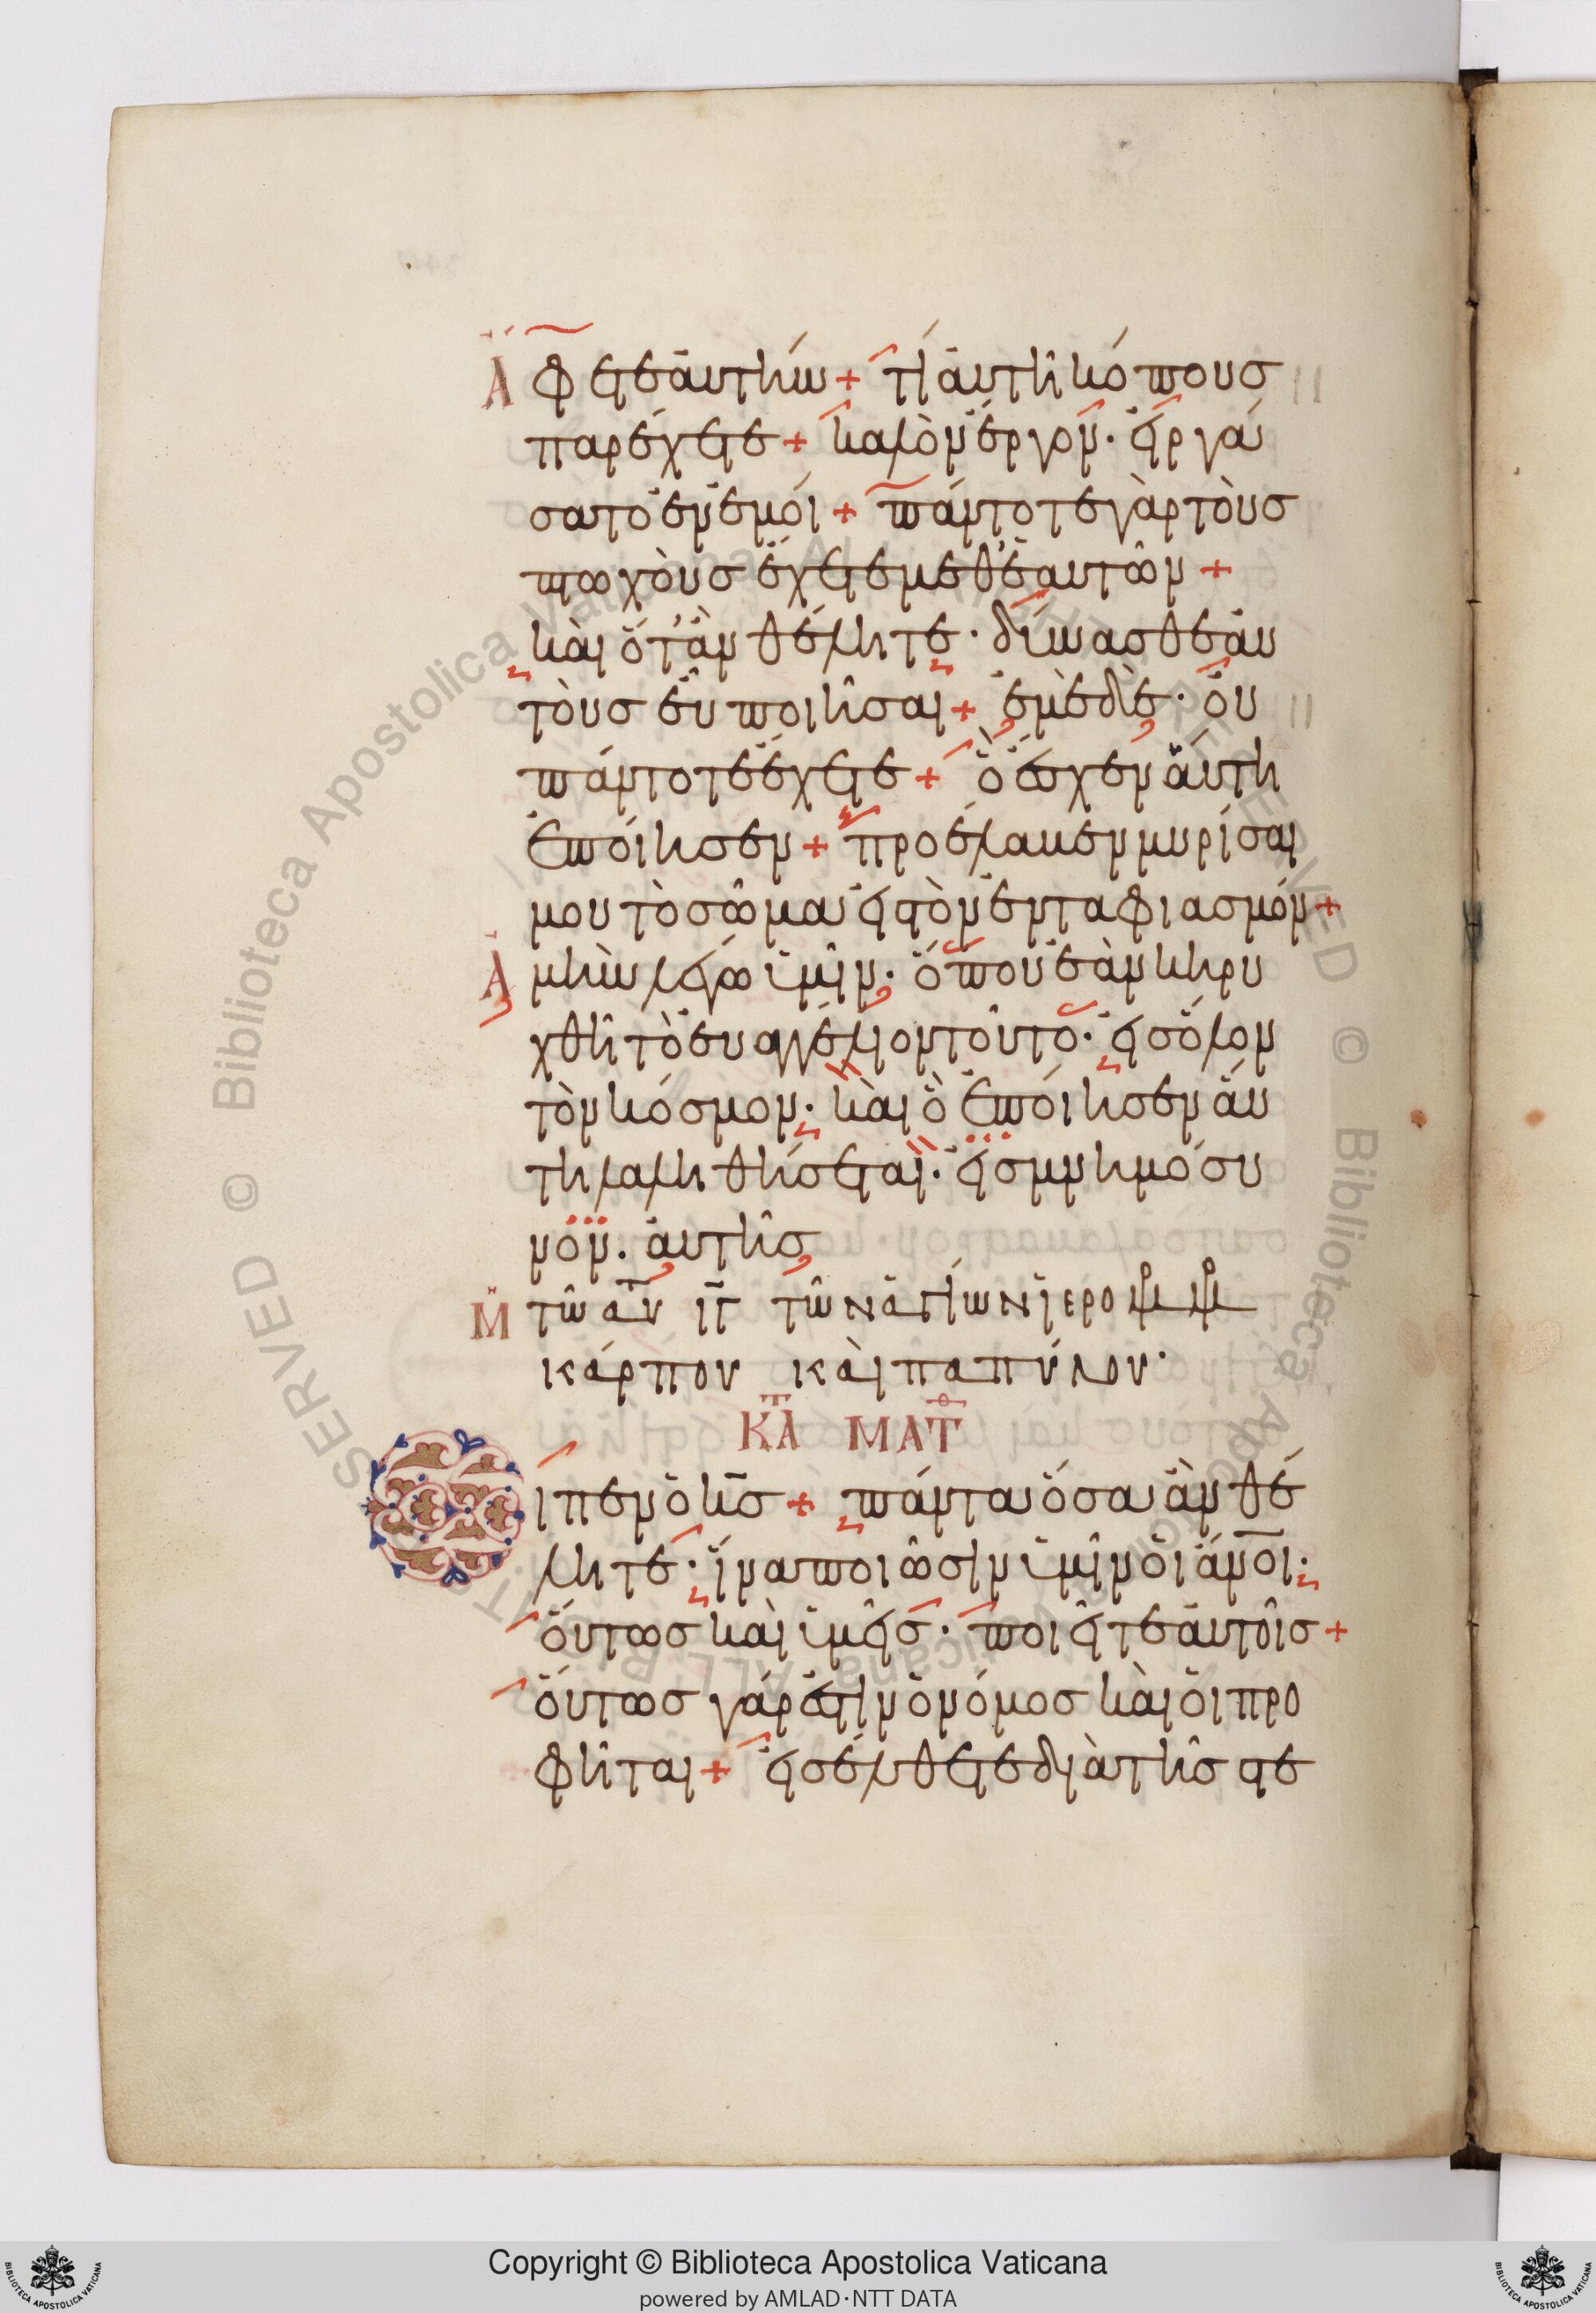 Ἄφετε αὐτήν + τί αὐτῆ κόπους
παρέχετε + καλὸν ἔργον· εἰργά
σατο ἐν ἐμοί + πάντοτε γὰρ τοὺς
πτωχοὺς ἔχετε μεθ' ἑαυτῶν +
καὶ ὅτ' ἂν θέλητε· δύνασθε αὐ
τοὺς εὖ ποιῆσαι + ἐμὲ δὲ· οὐ
πάντοτε ἔχετε + ὃ ἔσχεν αὕτη
ἐποίησεν + προέλαβεν μυρίσαι
μου τὸ σῶμα εἰς τὸν ἐνταφιασμόν +
Ἀμὴν λέγω ὑμῖν· ὅπου ἐὰν κηρυ
χθῆ τὸ εὐαγγέλιον τοῦτο· εἰς ὅλον
τὸν κόσμον· καὶ ὃ ἐποίησεν αὕ
τη λαληθήσεται· εἰς μνημόσυ
νον· αὐτῆς
Μ τῶ αυ ιγ τῶν ἁγίων ἱερομμ
κάρπου καὶ παπύλου·
Κ ΜΑΤΘ
Εἶπεν ὁ κς + πάντα ὅσα ἂν θέ
λητε· ἵνα ποιῶσιν ὑμῖν οἱ ἄνοι·
οὕτως καὶ ὑμεῖς· ποιεῖτε αὐτοῖς +
οὕτως γάρ ἐστιν ὁ νόμος καὶ οἱ προ
φῆται + εἰσέλθετε διὰ τῆς στε
Copyright © Biblioteca Apostolica Vaticana
powered by AMLAD·NTT DATA